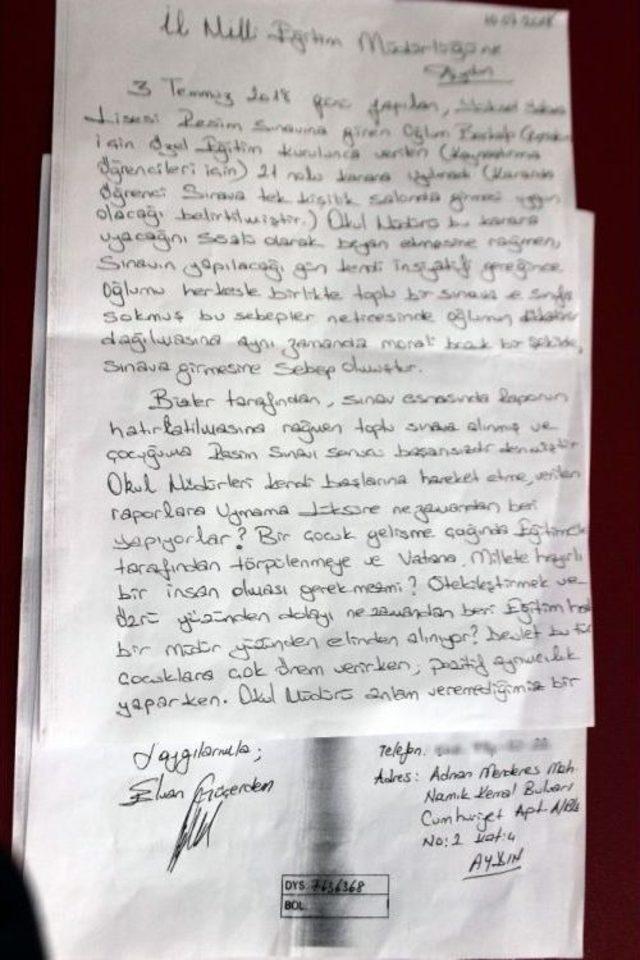 10.07.2018
İl Milli Eğitim Müdürlüğüne
Aydın
3 Temmuz 2018 günü yapılan,
Lisesi Resim Sınavına giren Oğlum
için Özel Eğitim kurulunca verilen (Kaynaştırma
Öğrencileri için) 21 nolu karara uyulmadı (Kararda
Öğrenci Sınava tek kişilik salonda girmesi uygun
olacağı belirtilmiştir.) Okul Müdürü bu karara
uyacağını sözlü olarak beyan etmesine rağmen,
Sınavın yapılacağı gün kendi insiyatifi gereğince
Oğlumu herkesle birlikte toplu bir sınava ve sınıfa
sokmuş bu sebepler neticesinde oğlumun
dağılmasına aynı zamanda morali bozuk bir şekilde,
sınava girmesine sebep olmuştur.
Bizler tarafından, sınav esnasında Raporun
hatırlatılmasına rağmen toplu sınava alınmış ve
çocuğuma Resim Sınavı sonucu başarısızdır denmiştir
Okul Müdürleri kendi başlarına hareket etme, verilen
raporlara Uymama Lüksüne ne zamandan beri
yapıyorlar? Bir çocuk gelişme çağında
tarafından törpülenmeye ve Vatana, Millete hayırlı
bir insan olması gerekmezmi? Ötekileştirmek ve
yüzünden dolayı ne zamandan beri Eğitim
bir müdür yüzünden elinden alınıyor? Devlet bu tür
çocuklara çok önem verirken, pozitif ayrımcılık
yaparken. Okul Müdürü anlam veremediğimiz bir
Saygılarımla;
Telefon:
Adres: Adnan Menderes Mah.
Namık Kemal Bulvarı
Cumhuriyet Apt.
No: 2 Kat: 4
AYDIN
DYS 7636368
BÖL